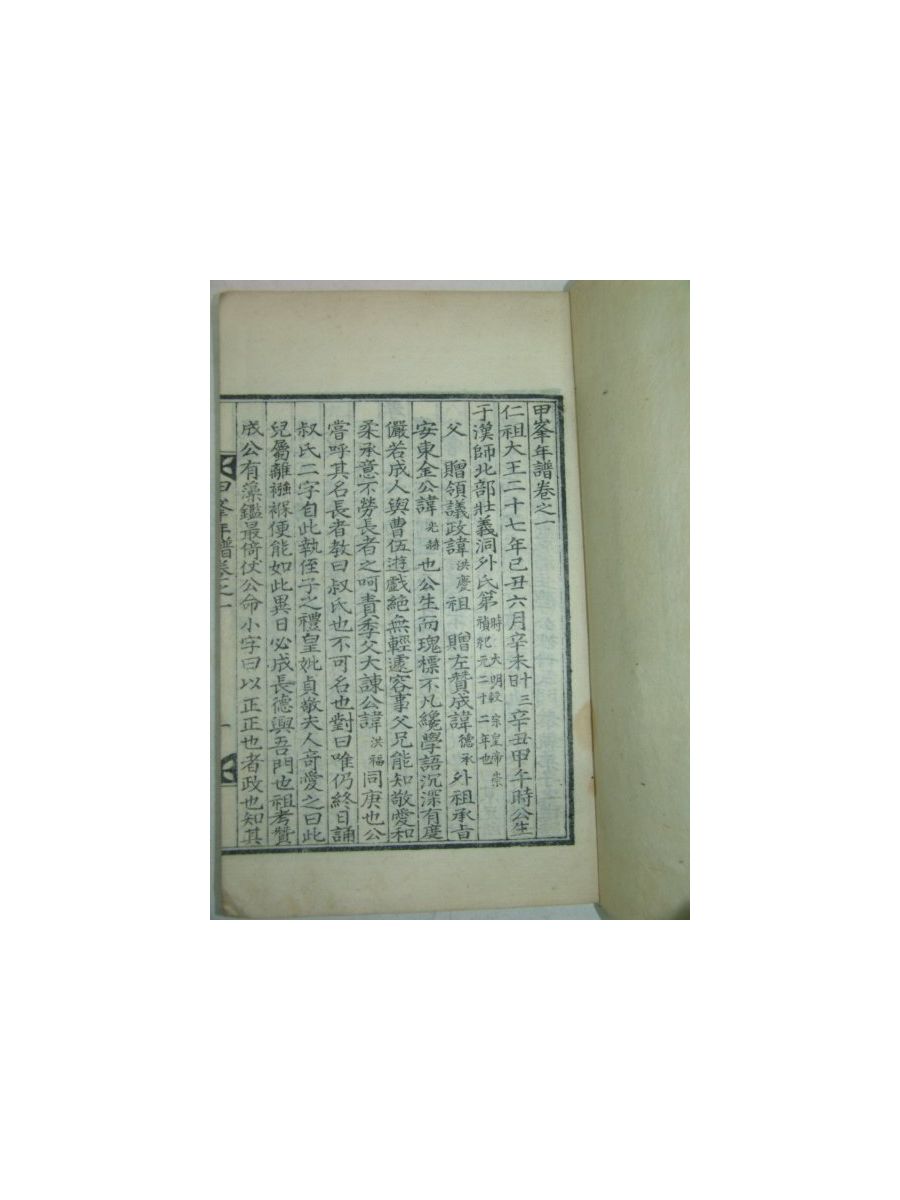 甲峯年譜卷之一
仁祖大王二十七年己丑六月辛未十三日辛丑甲午時公生
于漢師北部壯義洞外氏第時大明毅宗皇帝崇禎紀元二十二年也
父贈領議政諱洪慶祖贈左贊成諱德承外祖承旨
安東金公諱光赫也公生而瑰標不凡纔學語沉深有度
儼若成人與曹伍遊戱絶無輕遽容事父兄能知敬愛和
柔承意不勞長者之呵責季父大諫公諱洪福同庚也公
嘗呼其名長者敎曰叔氏也不可名也對曰唯仍終日誦
叔氏二字自此執侄子之禮皇妣貞敬夫人奇愛之曰此
兒屬離襁褓便能如此異日必成長德興吾門也祖考贊
成公有藻鑑最倚仗公命小字曰以正正也者政也知其
甲峯年譜卷之一
一